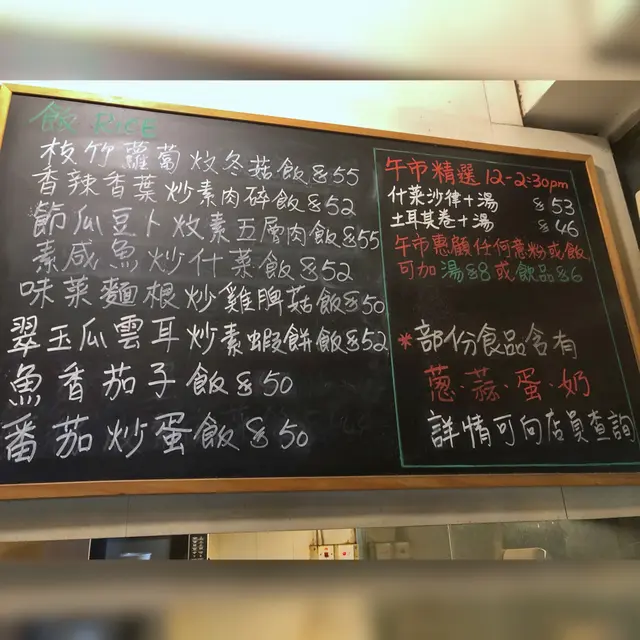 飯 RICE
枝竹蘿蔔炆冬菇飯$55
香辣香葉炒素肉碎飯$52
節瓜豆卜炆素五層肉飯$55
素咸魚炒什菜飯$52
味菜麵根炒雞脾菇飯$50
翠玉瓜雲耳炒素蝦餅飯$52
魚香茄子飯$50
番茄炒蛋飯$50
午市精選 12-2:30pm
什菜沙律+湯 $53
土耳其卷+湯 $46
午市惠顧任何意粉或飯,
可加湯$8或飲品$6
*部份食品含有
蔥·蒜·蛋·奶
詳情可向店員查詢